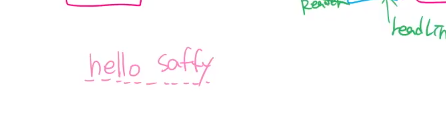 Reader
headLin
hello saffy